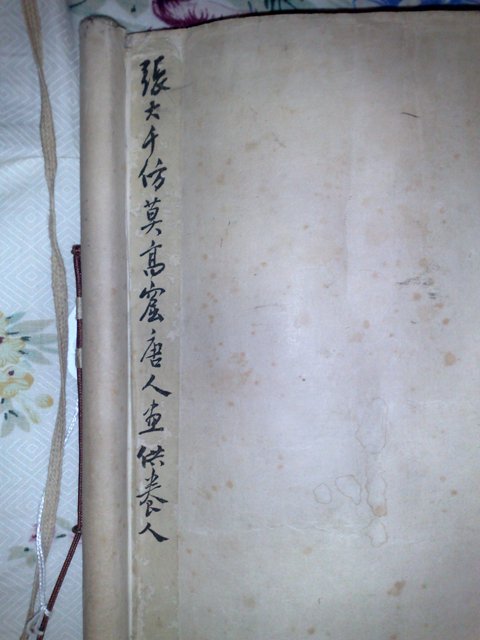 張大千仿莫高窟唐人画供养人